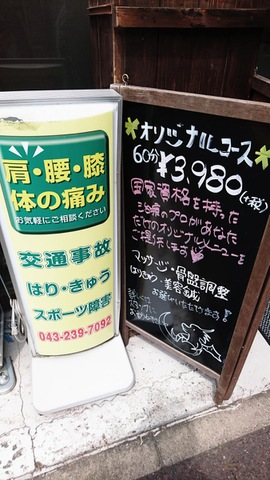 肩・腰・膝
体の痛み
お気軽にご相談ください
交通事故
はり・きゅう
スポーツ障害
043-239-7092
オリジナルコース
60分 ¥3,980(+税)
国家資格を持った
治療のプロがあなた
だけのオリジナルメニューを
ご提供します
マッサージ・骨盤調整
はりきゅう・美容鍼